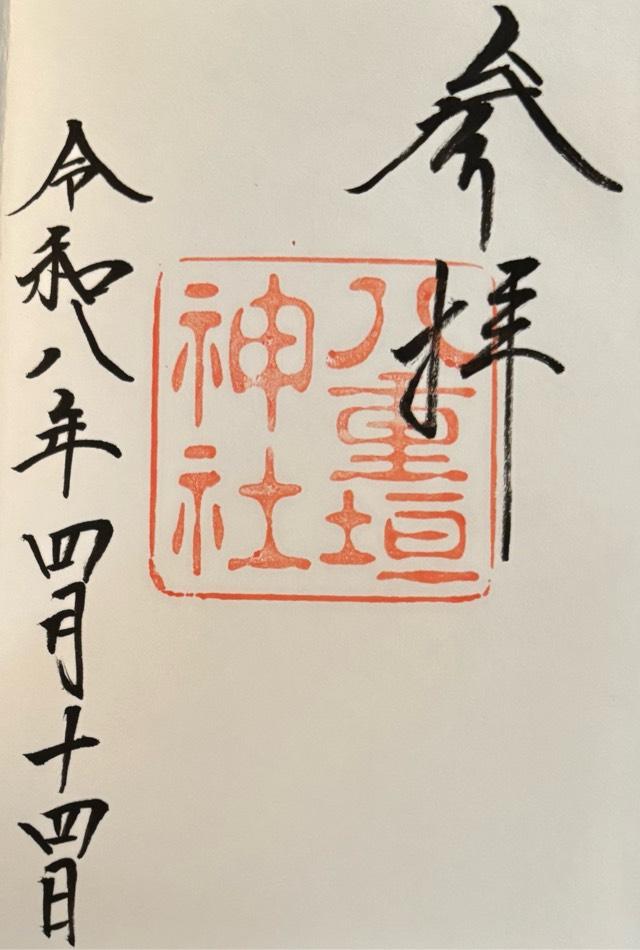 参拝
八重垣
神社
令和八年四月十四日